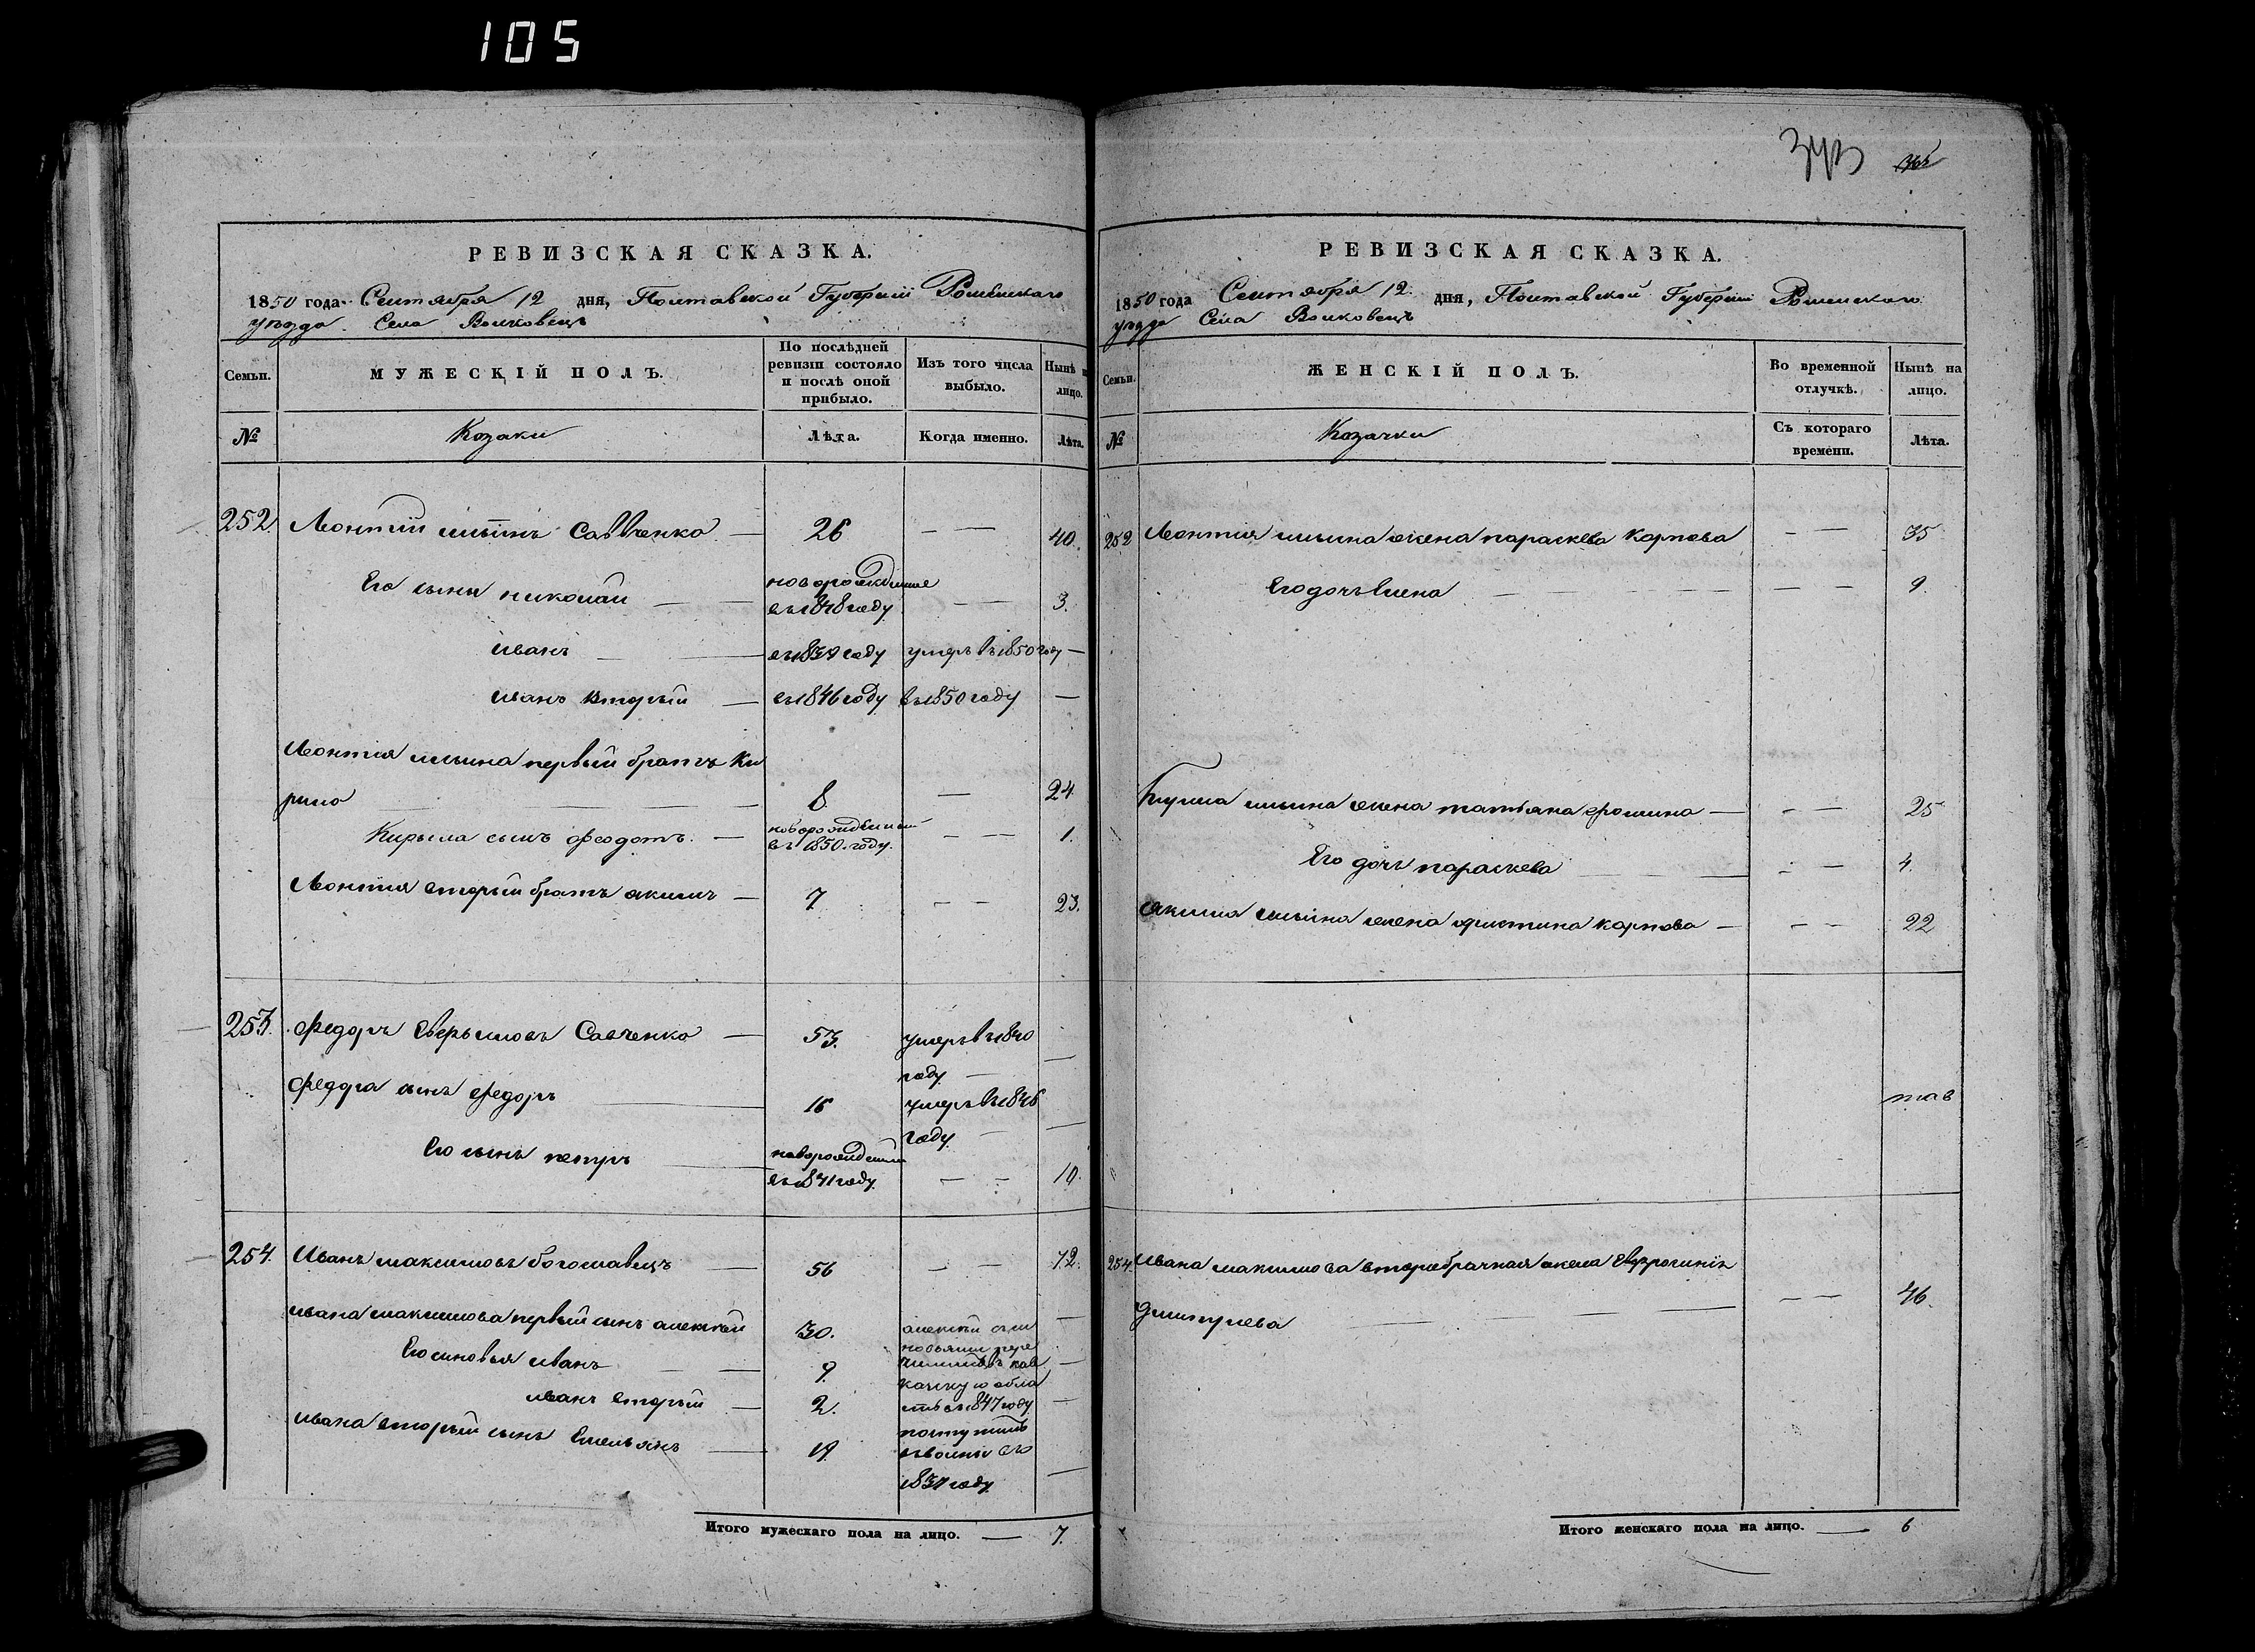 105
343
РЕВИЗСКАЯ СКАЗКА.
1850 года Сентября 12 дня, Полтавской Губерніи Роменскаго
уезда Села Волковецъ
Семьи.
МУЖЕСКІЙ ПОЛЪ.
По послѣдней ревизіи состояло и послѣ оной прибыло.
Изъ того числа выбыло.
Нынѣ на лицо.
№
Козаки
Лѣта.
Когда именно.
Лѣта.
252. Леонтій ильинъ Савченко — 26 — — 40.
Его сыны николай — — новорожденные
въ 1848 году — — 3.
иванъ — — въ 1839 году умеръ въ 1850 году —
иванъ вторый — въ 1846 году въ 1850 году —
Леонтія ильина первый братъ Ки
рило — — — 8 — 24
Кирыла сынъ феодотъ. — новорожденный
въ 1850. году. — — 1.
Леонтія вторый братъ якимъ — 7 — — 23.
253. Федоръ Аверьяновъ Савченко — 53. умеръ въ 1840
году — —
Федора сынъ федоръ — 16 умеръ въ 1846
году — —
Его сынъ петръ — новорожденный
въ 1841 году. — — 10.
254. Иванъ максимовъ богославецъ — 56 — — 72.
ивана максимова первый сынъ алексѣй 30. алексѣй съ сы —
Его синовья иванъ — — 9. новьями пере
численъ въ кав —
казкую обла
иванъ вторый — 2. сть въ 1847 году —
ивана вторый сынъ Емельянъ — 19. поступилъ
1837 году —
Итого мужескаго пола на лицо. — 7.
РЕВИЗСКАЯ СКАЗКА.
1850 года Сентября 12 дня, Полтавской Губерніи Роменскаго
уезда Села Волковецъ
Семьи.
ЖЕНСКІЙ ПОЛЪ.
Во временной отлучкѣ.
Нынѣ на лицо.
№
Козачки
Съ котораго времени.
Лѣта.
252 Леонтія ильина жена параскева Карпова — — 35
Его дочь Елена — — — — — 9.
Кирила ильина жена татьяна ерошина — — — 25
Его дочь параскева — — — — 4.
якима ильина жена христина карпова — — — 22
254. Ивана максимова второбрачная жена Евфросинія
дмитріева — — — — — 46.
Итого женскаго пола на лицо. — 6